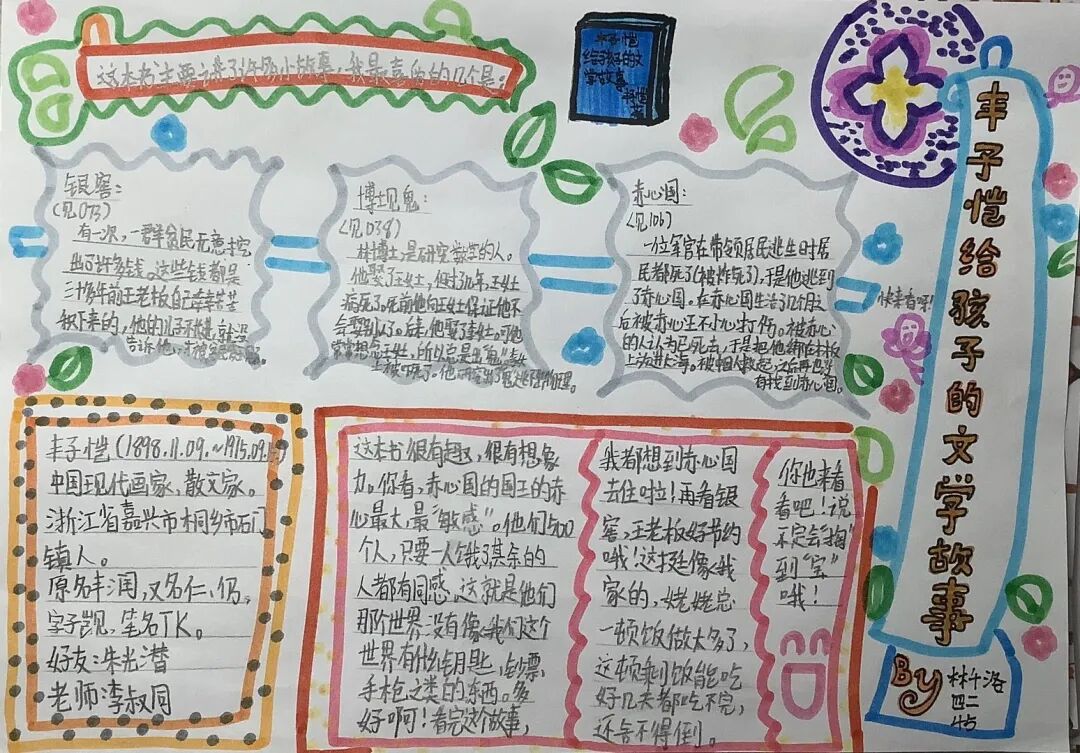 这本书主要讲了许多小故事，我最喜欢的几个是：
丰子恺
给孩子的文
学故事
丰子恺给孩子的文学故事
By
林千洛
四二
45
快来看呀！
银窖：
（见073）
有一次，一群贫民无意挖
出了许多钱。这些钱都是
三十多年前王老板自己辛辛苦苦
积下来的，他的儿子不快，就没
告诉他，
博士见鬼：
（见038）
林博士，是研究数学的人。
他娶了王女士，但好几年，王女士
病死了。死前他向王女士保证他不
会娶别人了。后来，他娶了李女士。可他
常常想念王女士，所以
赤心国：
（见106）
一位军官在带领居民逃生时居
民都死了（被炸死了），于是他逃到
了赤心国。在赤心国生活了几个月
后被赤心王不小心打伤。被赤心
的人认为已死去，于是把他绑在木板
上放进大海。被船人救起，之后再也没
有找到赤心国。
丰子恺（1898.11.09.~1915.09.15）
中国现代画家，散文家。
浙江省嘉兴市桐乡市石门
镇人。
原名丰润，又名仁、仍，
字子觊，笔名TK。
好友：朱光潜
老师：李叔同
这本书很有趣，很有想象
力。你看，赤心国的国王的赤
心最大，最“敏感”。他们500
个人，只要一人饿了其余的
人都有同感。这就是他们
那个世界。没有像我们这个
世界有什么钥匙，钞票
手枪之类的东西。多
好啊！看完这个故事，
我都想到赤心国
去住啦！再看银
窖，王老板好节约
哦！这挺像我
家的，姥姥总
一顿饭做太多了，
这顿剩饭能吃
好几天都吃不完，
还舍不得倒。
你也来看
看吧！说
不定会掏
到“宝”
哦！